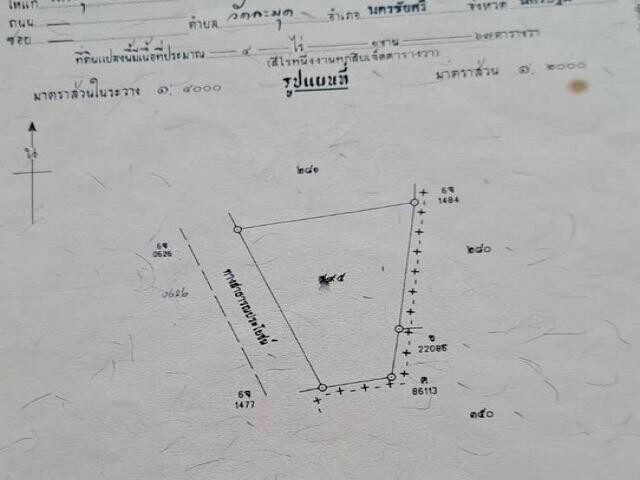 ถนน
ตำบล วัดละมุด อำเภอ นครชัยศรี จังหวัด
ซอย
ที่ดินแปลงนี้มีเนื้อที่ประมาณ ๔ ไร่ ๑ งาน ๖๗ ตารางวา
(สี่ไร่หนึ่งงานหกสิบเจ็ดตารางวา)
มาตราส่วนในระวาง ๑: ๔๐๐๐ รูปแผนที่ มาตราส่วน ๑: ๒๐๐๐
๒๘๑
6จ
1484
6จ
0626
๒๘๐
0626
ทางสาธารณประโยชน์
ข
22086
ค
86113
6จ
1477
๑๕๐